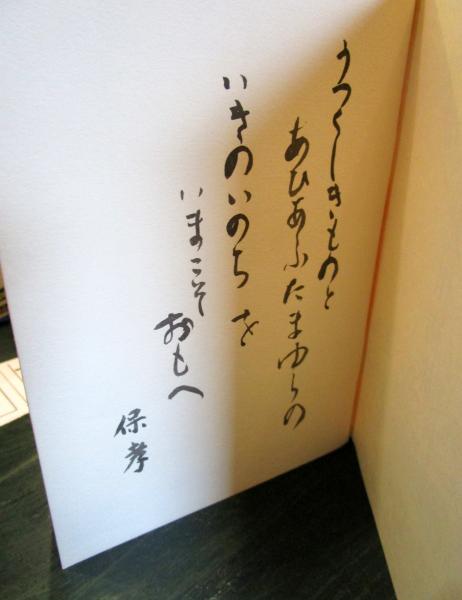 うつくしきものと
あひあふたまゆらの
いきのいのちを
いまこそ
おもへ
保孝